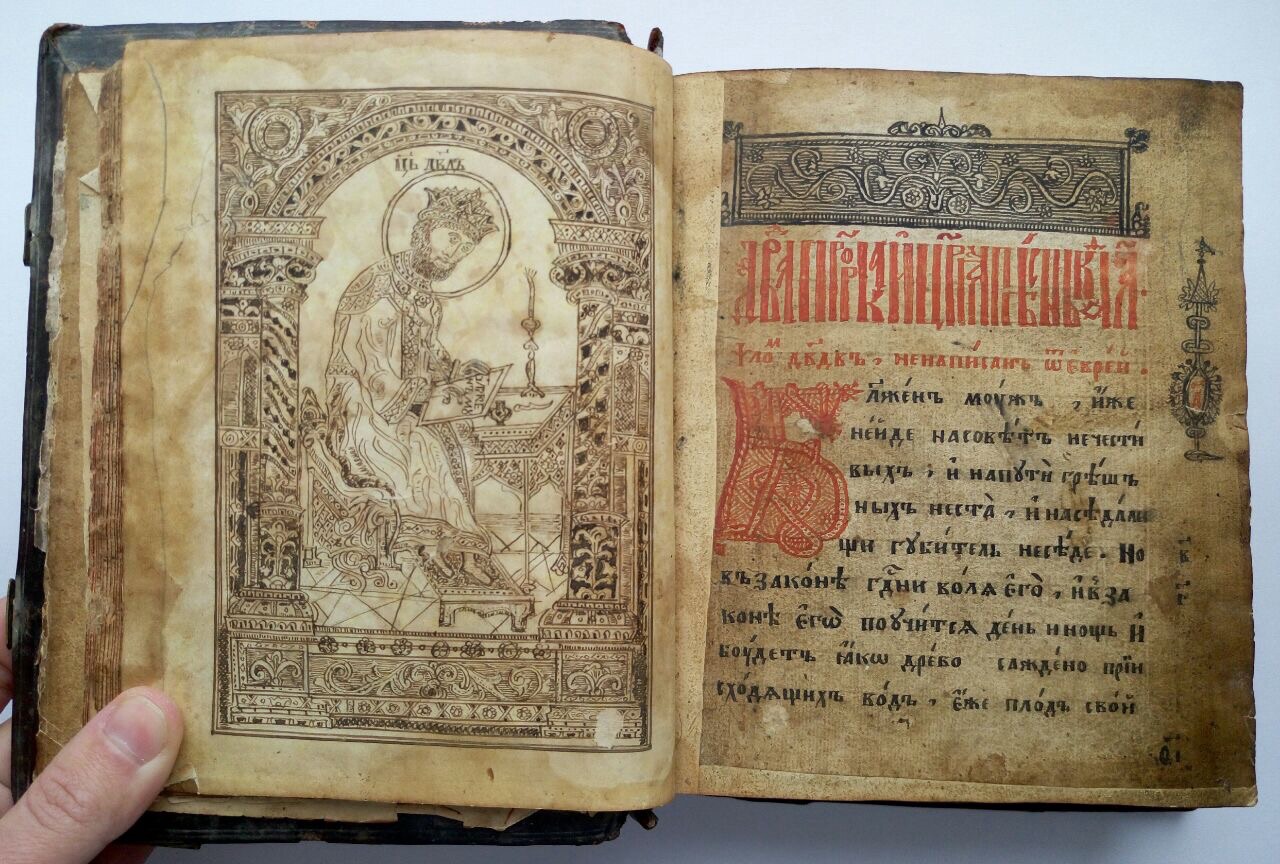 цр҃ь дв҃дъ
дв҃да прⷪ҇рка и цр҃ѧ пѣснь, а҃.
ѱало́мъ дв҃двъ, не написанъ ѿ є҆врє́й.
Блаже́нъ мѹ́жъ, и҆́же
не и҆́де на совѣ́тъ нечести
выхъ, и҆ на пути̑ грѣ́шъ
ныхъ не ста̀, и҆ на сѣда́ли
щи гѹби́тель не сѣ́де. Но
въ зако́нѣ гдⷭ҇ни во́лѧ є҆гѡ̀, и҆ в за
ко́нѣ є҆гѡ̀ поѹчи́тсѧ де́нь и но́щь И
бѹ́детъ ꙗ҆́кѡ дре́во саждє́но при и
схо́дѧщихъ во́дъ, є҆́же пло́дъ сво́й